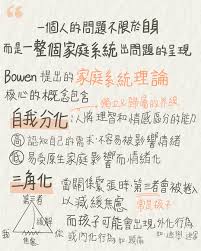 一個人的問題不限於自身
而是一整個家庭系統出問題的呈現
Bowen 提出的家庭系統理論
核心的概念包含
獨立&歸屬的界線
自我分化 以將理智和情感區分的能力
高 認知自己的需求,不容易被影響情緒
低 易受原生家庭影響而情緒化
三角化 當關係緊張時,第三者會被捲入
以減緩焦慮 常是孩子
第三者
而孩子可能會出現外化行為
緩解
我 焦慮 你 或內化行為